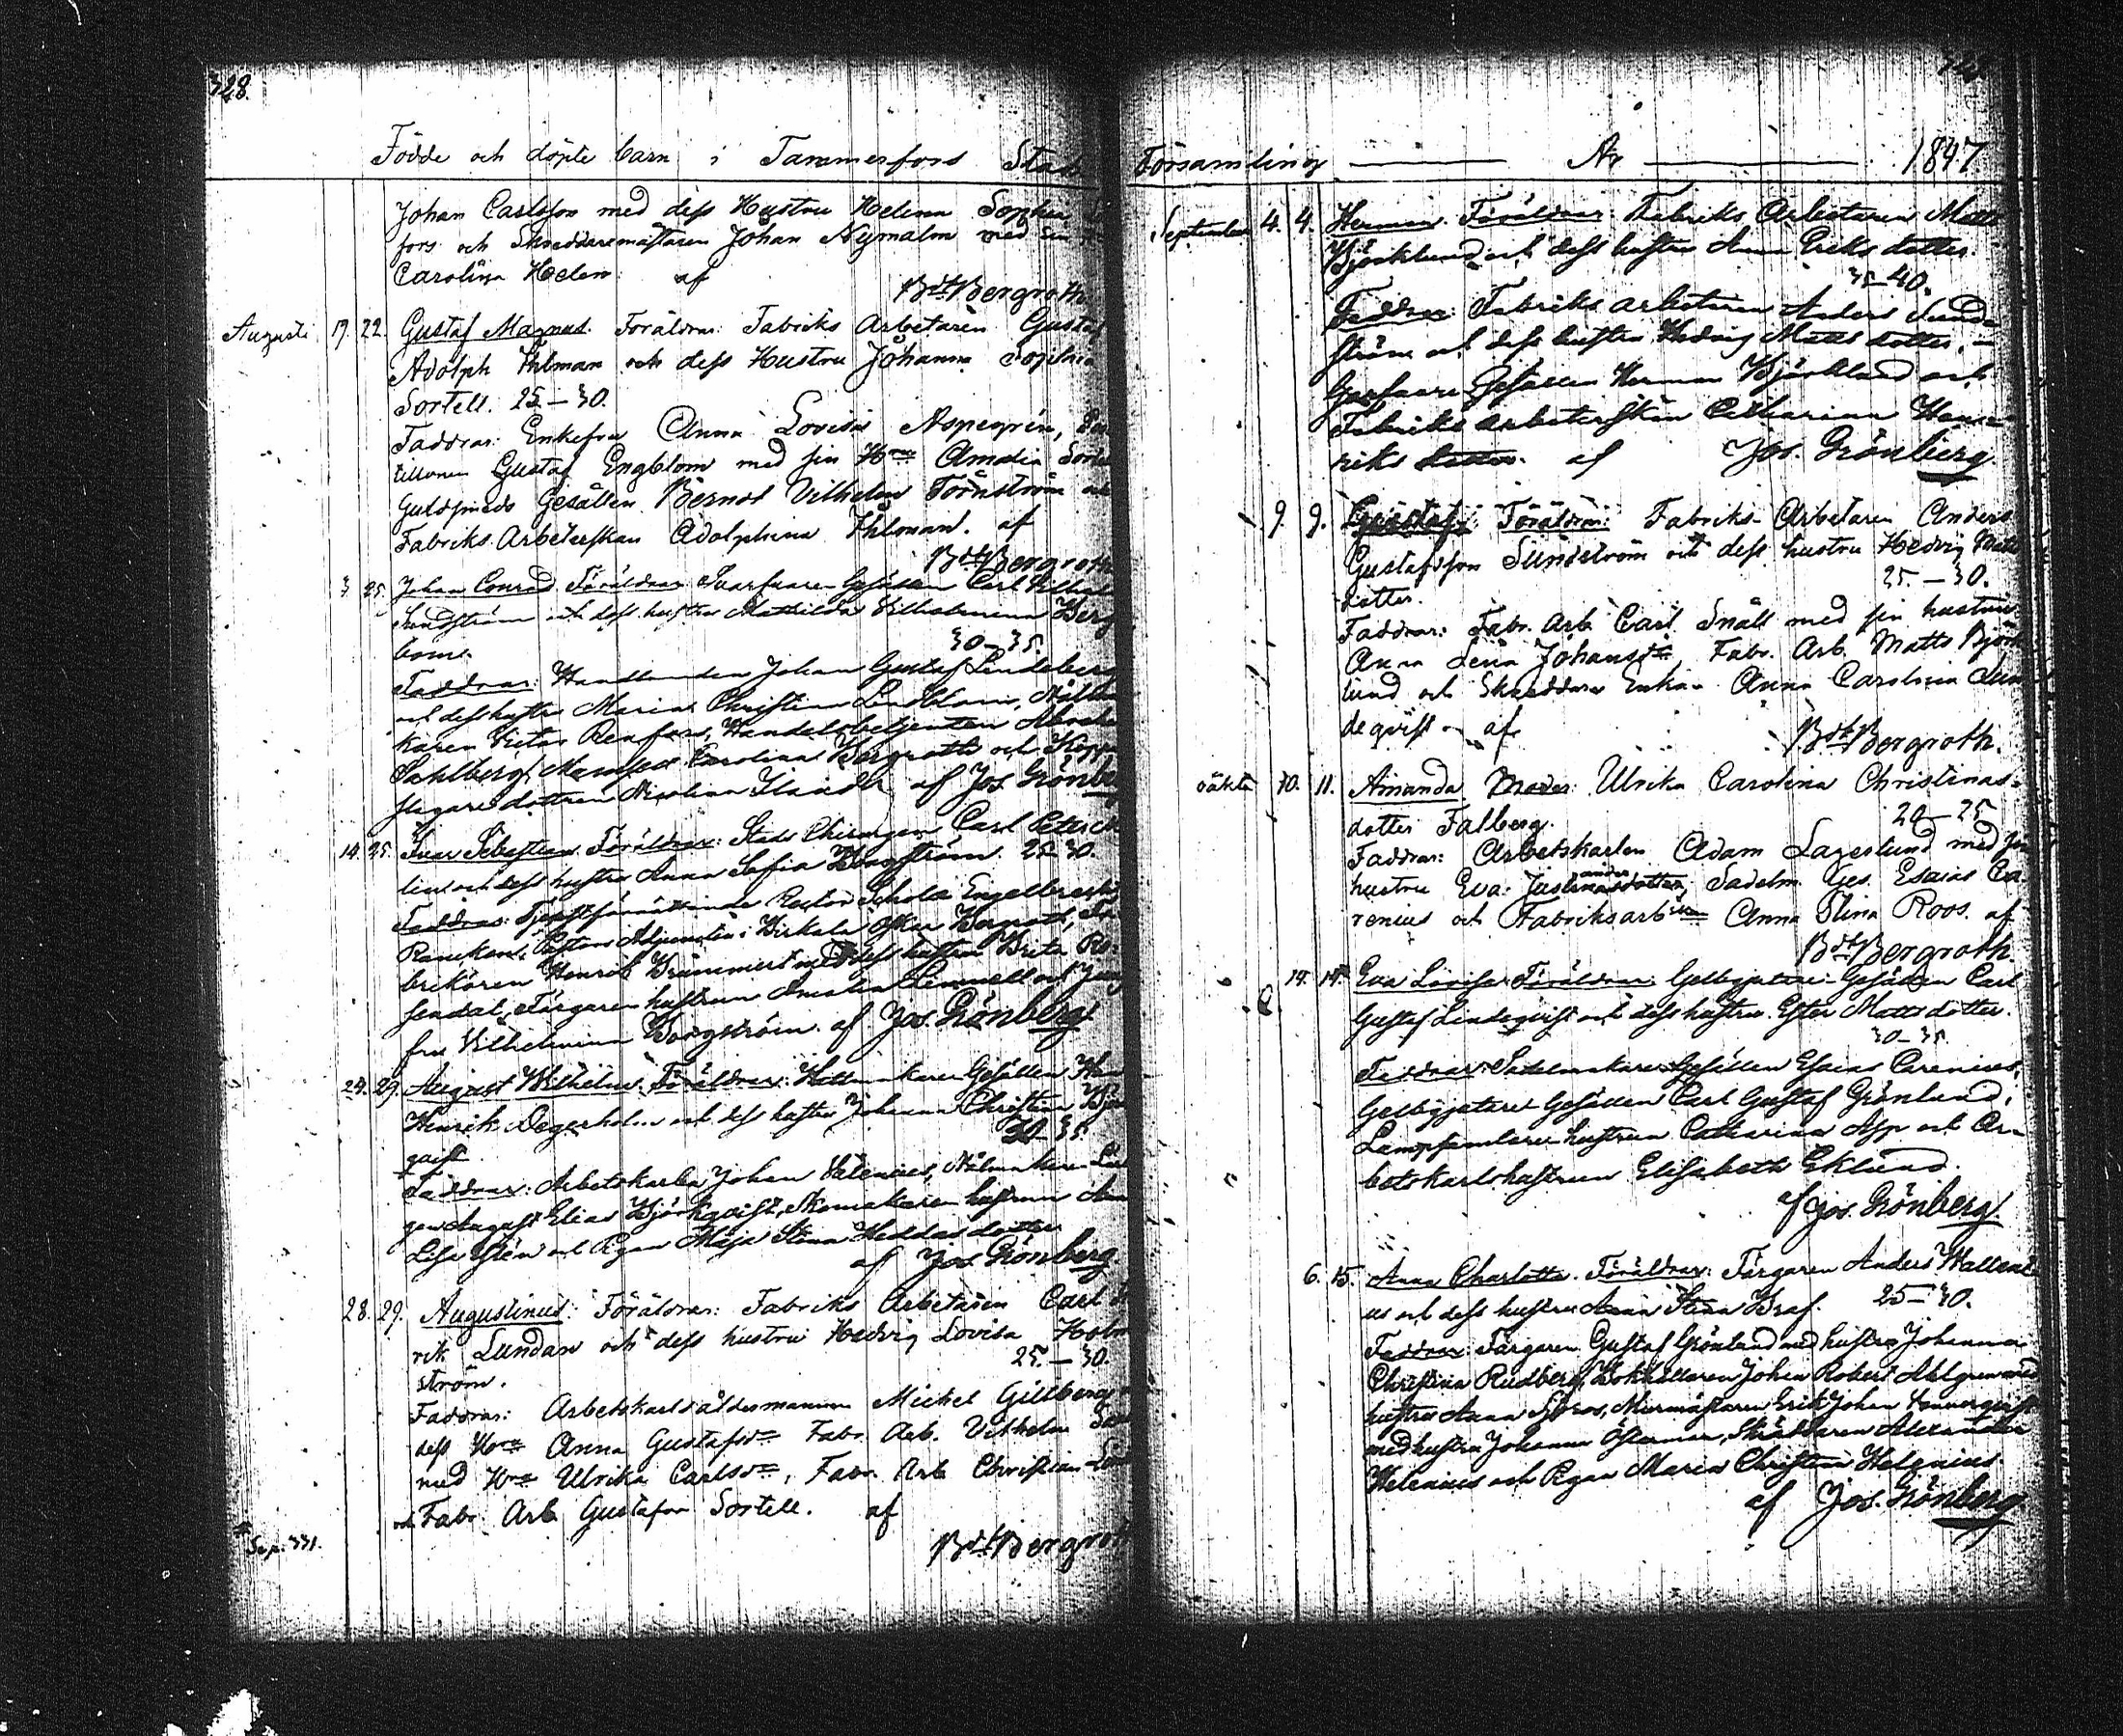 328.
Födde och döpte barn i Tammerfors Stads
Johan Carlsson med dess Hustru Helena Sophia
fors och Skreddaremästaren Johan Nymalm med sin
Carolina Helen af
Bdt Bergroth.
Augusti 17. 22. Gustaf Magnus. Föräldrar: Fabriks Arbetaren Gustaf
Adolph Ihlman och dess Hustru Johanna Sophia
Sortell. 25–30.
Faddrar: Enkefru Anna Lovisa Aspegrén,
Gustaf Engblom med sin Hru Amalia
Guldsmeds Gesällen Berndt Vilhelm Törnström och
Fabriks Arbeterskan Adolphina Ihlman. af
Bdt Bergroth
3. 25. Johan Conrad Föräldrar: Svarfvare Gesällen Carl Vilhelm
Sundström och dess hustru Mathilda Vilhelmina Berg
bom.
30–35.
Faddrar: Handlanden Johan Gustaf Lindeberg
och dess hustru Maria Christina Lindblom,
karen Victor Renfors, Handelsbetjenten
Sahlberg, Carolina Bergroth och
slagare dottren Nicolina af Jos. Grönberg
14. 25. Ivar Sebastian. Föräldrar: Stads Chirurgen Carl
lin och dess hustru Anna Sofia Borgström. 25–30.
Faddrar: Tjenstförrättande Rector Scholæ Engelbrecht
Rancken, Pastors Adjuncten i Birkala Oskar Bergroth,
brikören Henrik med dess hustru Brita
sendal, Färgaren hustrun Amalia och Jung
fru Vilhelmina Borgström. af Jos. Grönberg
24. 29. August Wilhelm. Föräldrar: Hattmakare Gesällen
Henrik Degerholm och dess hustru Johanna Christina
qvist
30–35.
Faddrar: Arbetskarlen Johan Valenius, Målmakare
gen August Elias Björkqvist, Skomakaren hustrun
Lisa och Pigan Maja Stina Heddas dotter
af Jos. Grönberg
28. 29. Augustinus: Föräldrar: Fabriks Arbetaren Carl
rik Lundan och dess hustru Hedvig Lovisa Holm
ström.
25.–30.
Faddrar: Arbetskarlsåldermannen Mickel Gillberg
dess Hru Anna Gustafsdr Fabr. Arb. Vilhelm
med Hru Ulrika Carlsdr, Fabr. Arb. Christian
och Fabr. Arb Gustafva Sortell. af
Bdt Bergroth
Sep. 331.
Församling År 1847.
September 4. 4. Herman. Föräldrar: Fabriks Arbetaren Matts
Björklund och dess hustru Anna Eriks dotter.
35–40.
Faddrar: Fabriks arbetaren Anders Sund-
ström och dess hustru Hedvig Matts dotter,
Garfvare Gesällen Herman Björklund och
Fabriks arbeterskan Catharina Hen-
riks dotter. af Jos. Grönberg.
9. 9. Gustaf: Föräldrar: Fabriks Arbetaren Anders
Gustafsson Sundström och dess hustru Hedvig Matts
dotter.
25.–30.
Faddrar: Fabr. Arb. Carl Snäll med sin hustru
Anna Lena Johansdr, Fabr. Arb. Matts Björk
lund och Skreddare Enkan Anna Carolina Lin
deqvist af
Bdt Bergroth.
oäkta 10. 11. Amanda Moder: Ulrika Carolina Christinas-
dotter Falberg.
20–25
Faddrar: Arbetskarlen Adam Lagerlund med sin
hustru Eva Justinasdotter, Sadelm. Ges. Esaias Ca-
renius och Fabriksarbskan Anna Stina Roos. af
Bdt Bergroth
14. 14. Eva Lovisa. Föräldrar: Gelbgjutare Gesällen Carl
Gustaf Lindeqvist och dess hustru Ester Matts dotter.
30–35.
Faddrar: Sadelmakare Gesällen Esaias Carenius,
Gelbgjutare Gesällen Carl Gustaf Grönlund,
Lumpsamlare hustrun Catharina Asp och Ar-
betskarlshustrun Elisabeth Eklund.
af Jos. Grönberg
6. 15. Anna Charlotta. Föräldrar: Färgaren Anders Walleni
us och dess hustru Anna Stina Graf. 25–30.
Faddrar: Färgaren Gustaf Grönlund med hustru Johanna
Christina Rudberg, Bokhållaren Johan Robert Ahlgren med
hustru Anna, Murmästaren Erik Johan
med hustru Johanna Österman, Skräddaren Alexander
Helenius och Pigan Maria Christina Helenius
af Jos. Grönberg